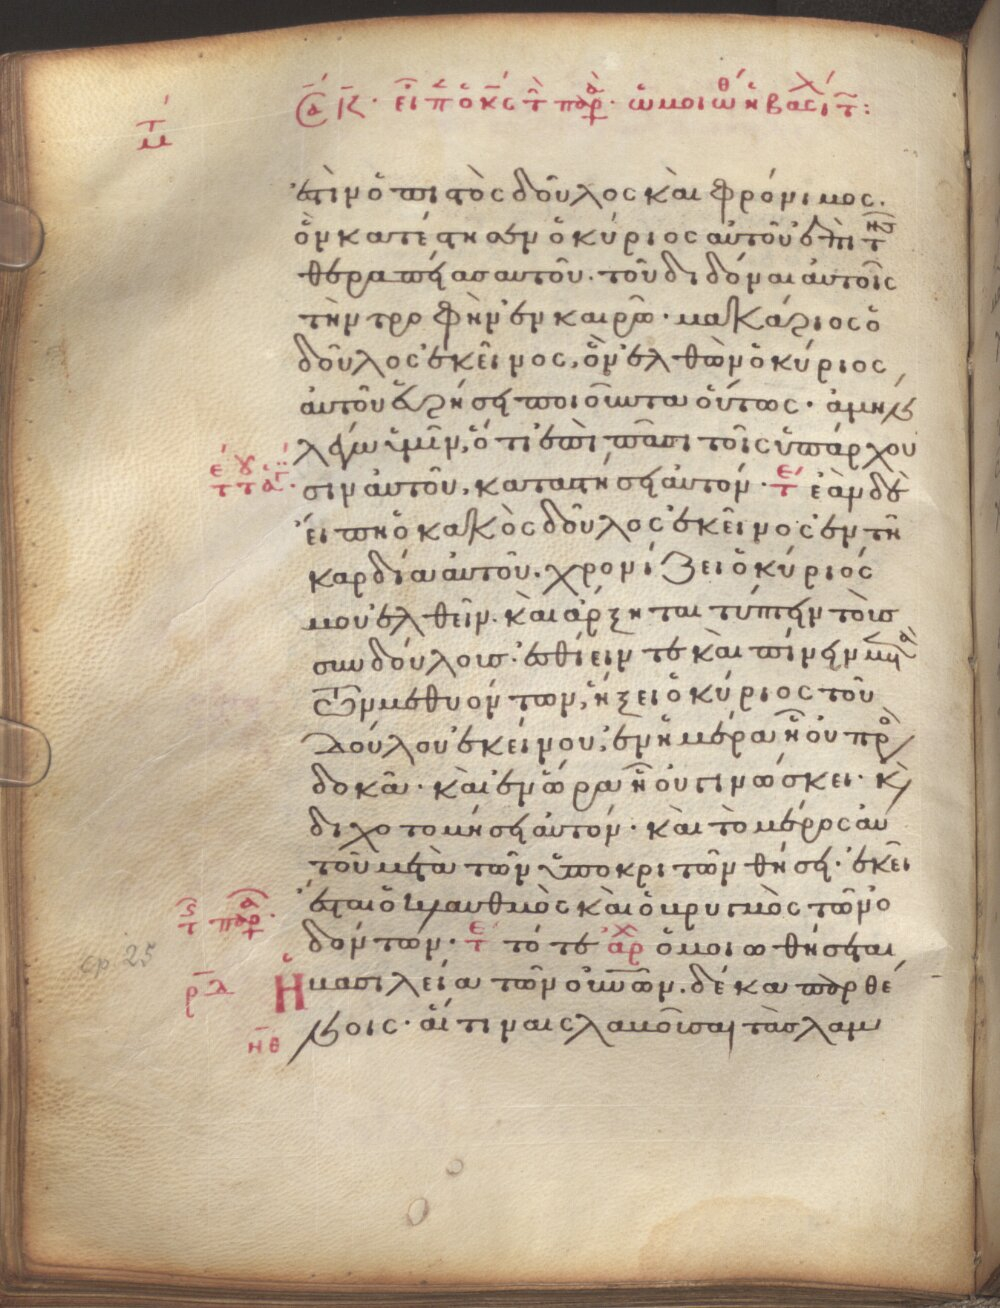 ἐστὶν ὁ πιστὸς δοῦλος καὶ φρόνιμος.
ὃν κατέστησεν ὁ κύριος αὐτοῦ ἐπὶ τῆς
θεραπείας αὐτοῦ. τοῦ διδόναι αὐτοῖς
τὴν τροφὴν ἐν καιρῶ· μακάριος ὁ
δοῦλος ἐκεῖνος, ὃν ἐλθὼν ὁ κύριος
αὐτοῦ εὑρήσει ποιοῦντα οὕτως· ἀμὴν
λέγω ὑμῖν, ὅτι ἐπὶ πᾶσι τοῖς ὑπάρχου
σιν αὐτοῦ, καταστήσει αὐτόν· ἐὰν δὲ
εἴπη ὁ κακὸς δοῦλος ἐκεῖνος ἐν τῆ
καρδία αὐτοῦ. χρονίζει ὁ κύριός
μου ἐλθεῖν. καὶ ἄρξηται τύπτειν τοὺς
συνδούλους· ἐσθίειν τε καὶ πίνειν μετὰ
τῶν μεθυόντων, ἥξει ὁ κύριος τοῦ
δούλου ἐκείνου, ἐν ἡμέρα ἧ οὐ προσ
δοκᾶ· καὶ ἐν ὥρα ἧ οὐ γινώσκει· κὶ
διχοτομήσει αὐτόν· καὶ τὸ μέρος αὐ
τοῦ μετὰ τῶν ὑποκριτῶν θήσει· ἐκεῖ
ἔσται ὁ κλαυθμὸς καὶ ὁ βρυγμὸς τῶν ὀ
δόντων· τότε ὁμοιωθήσεται
ἡ βασιλεία τῶν οὐνῶν. δέκα παρθέ
νοις· αἵτινες λαβοῦσαι τὰς λαμ
ρλ